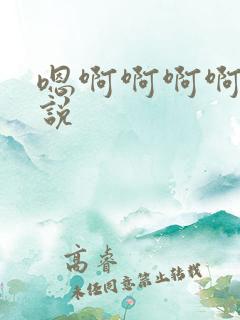 嗯啊啊啊啊
説
高睿
未经同意禁止转载